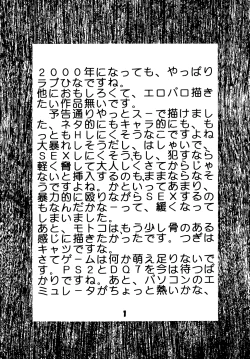 2000年になっても、やっぱり
ラブひなですね。
他におもしろくて、エロパロ描き
たい作品無いです。
予告通りやっとスーで描けまし
た、ネタ的にもキャラ的にも、も
っともHしにくそうなこですよね
大暴れしそうだし、はしゃいで、
SEXしにくそうもし、犯すなら
軽く脅して大人しくさせてからじゃ
ないと挿入するのもままならなそ
うですよね。かといってあまり、
暴力的に殴りながらSEXするの
もなんだかなーって、緩くなって
しまいました。
あと、モトコはもう少し骨のある
感じに描きたかったです。つぎは
キャツですな。
さてゲームは何か萌え足りないで
す。PS2とDQ7を今は待つば
かりですね。あと、パソコンのエ
ミュレータがちょっと熱いかな、
1